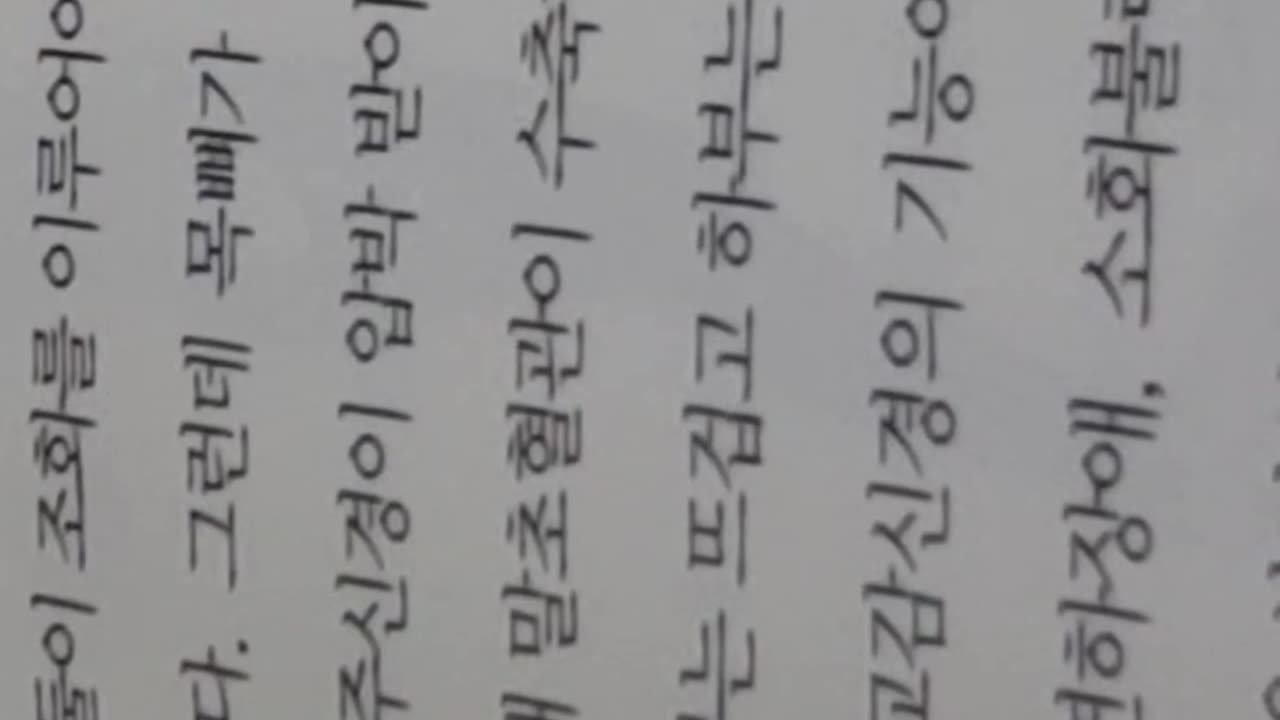 둘이 조화를 이루어
다. 그런데 목뼈가
주신경이 압박 받아
말초혈관이 수축
는 뜨겁고 하부는
교감신경의 기능
연하장애, 소화불